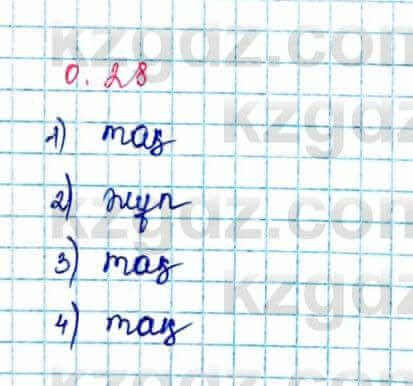 kzgdz.com
0.28
1) тақ
2) жұп
3) тақ
4) тақ